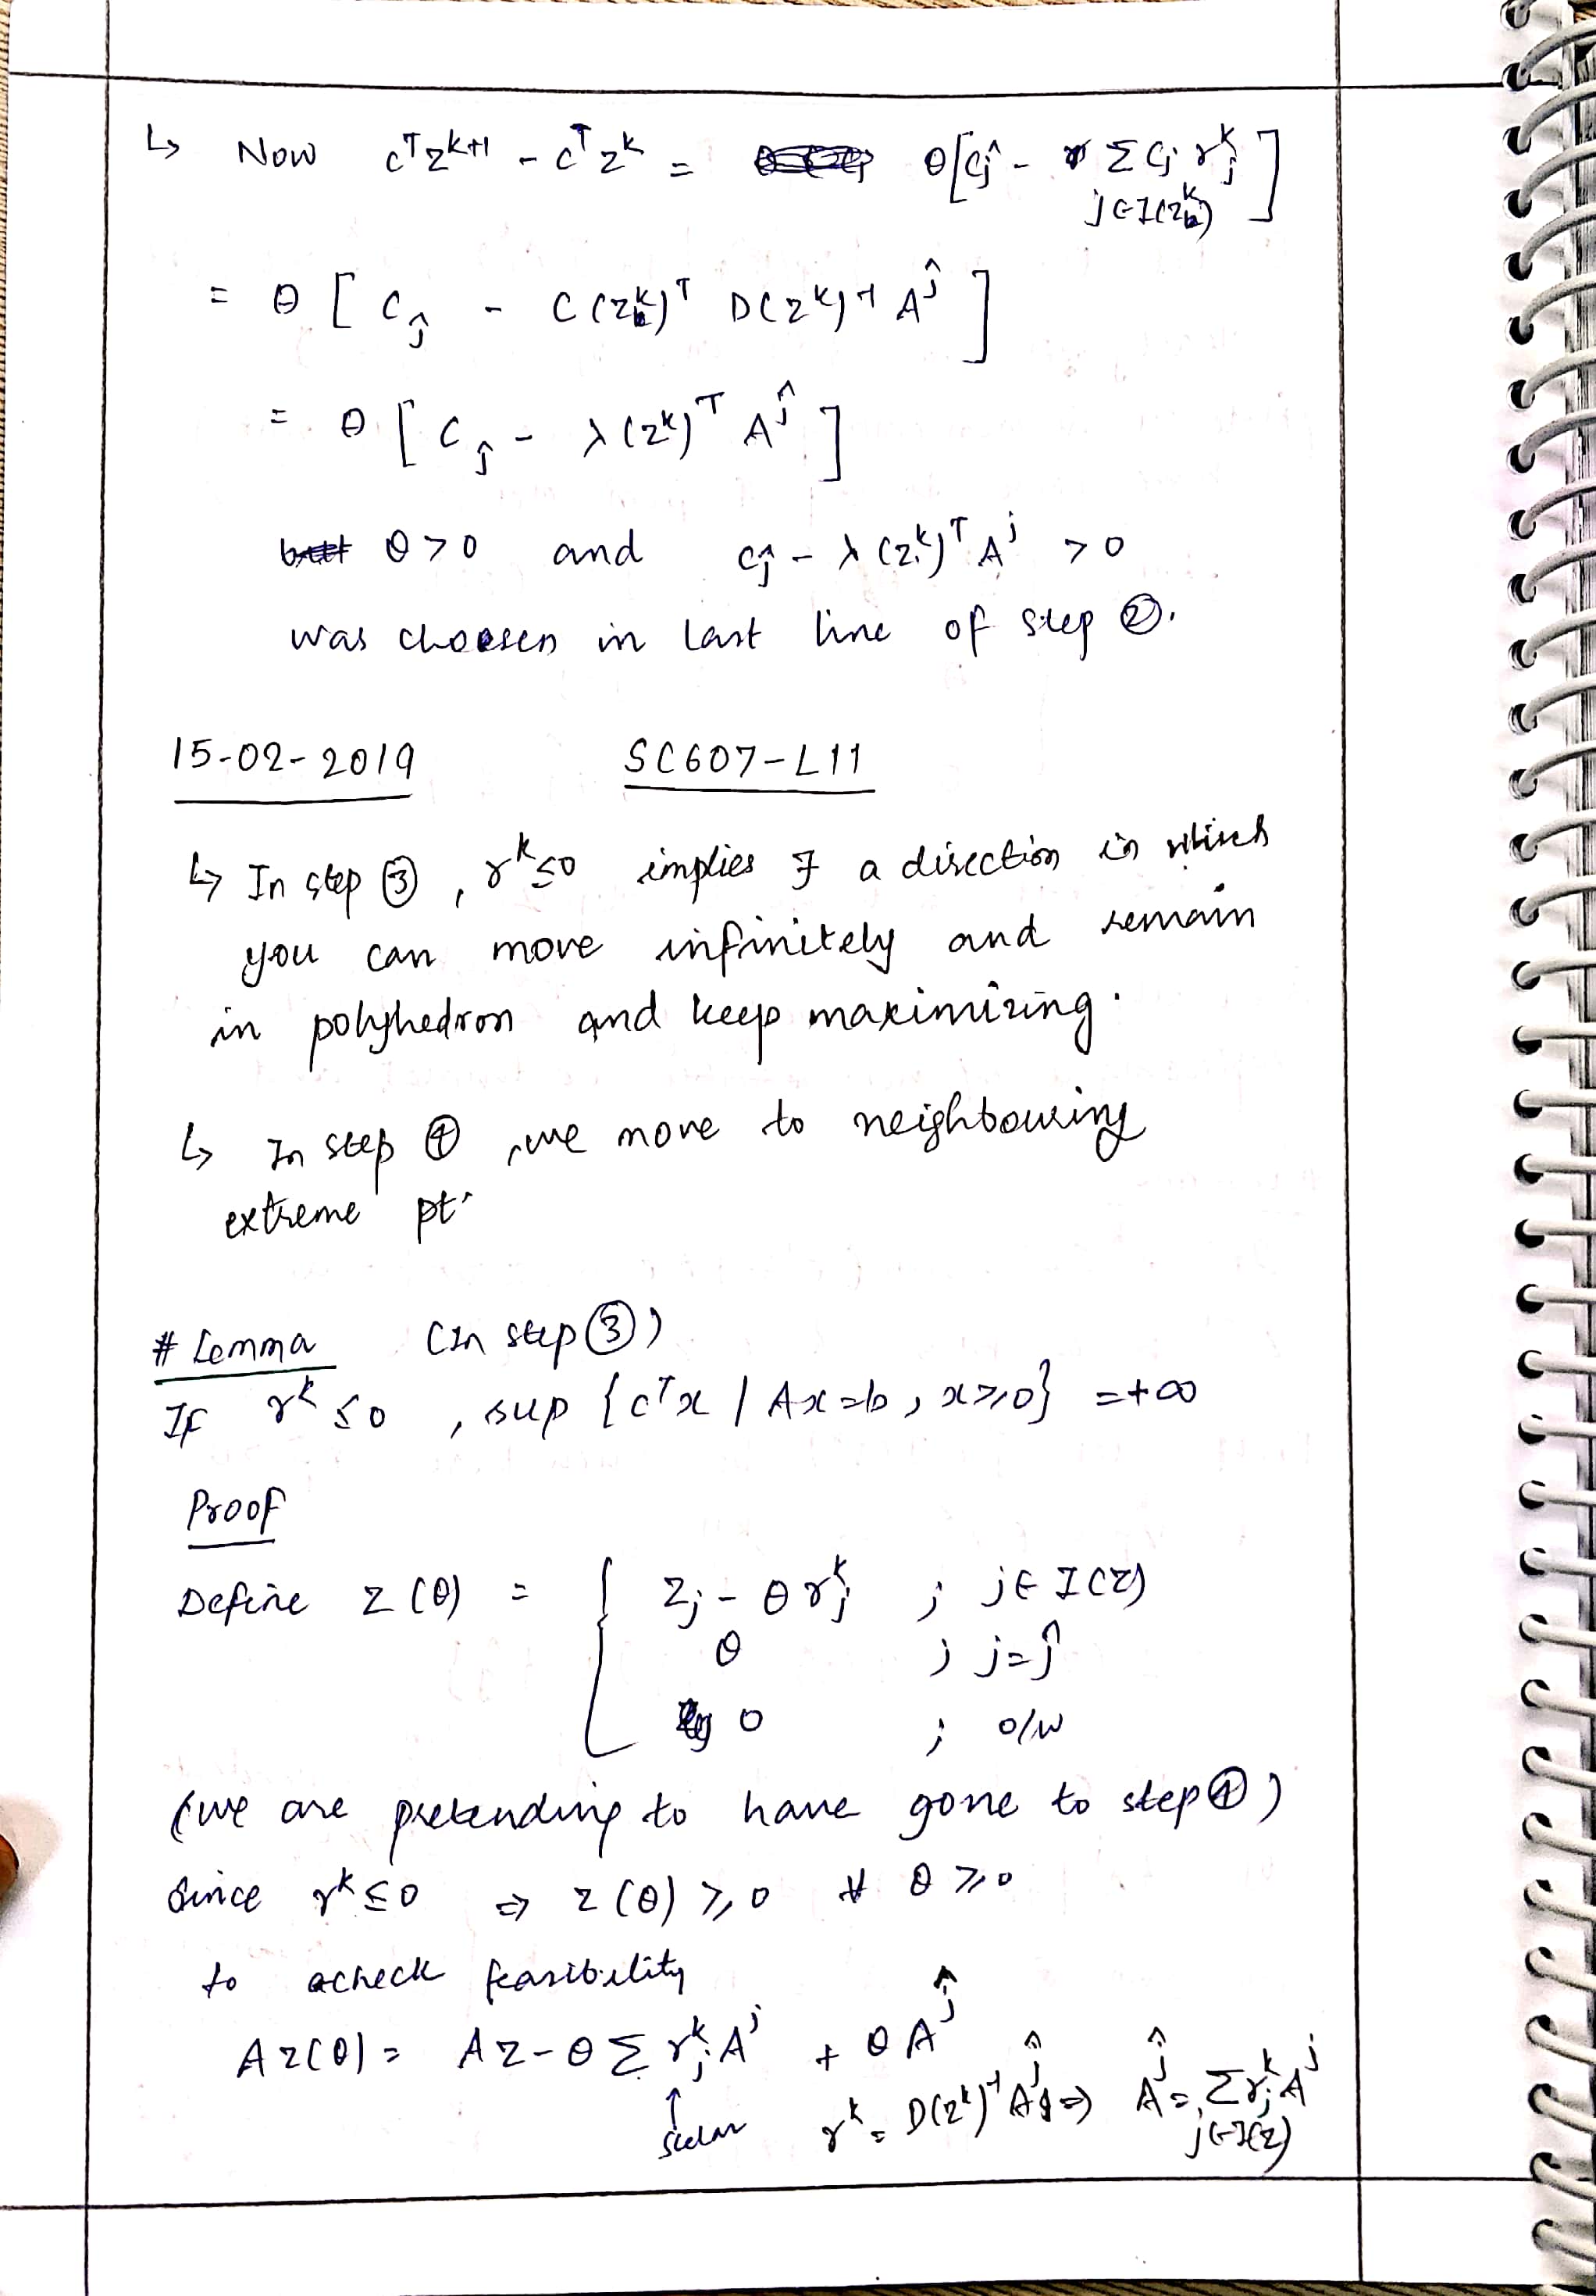 ↳ Now cᵀz^{k+1} - cᵀz^k = θ[c_ĵ - Σ_{j∈I(z^k)} c_j r_j^k]
= θ [ c_ĵ - C(z^k)ᵀ D(z^k)^{-1} A^ĵ ]
= θ [ c_ĵ - λ(z^k)ᵀ A^ĵ ]
θ > 0 and c_ĵ - λ(z^k)ᵀ A^j > 0
was choosen in last line of step ②.
15-02-2019 SC607-L11
↳ In step ③, r^k ≤ 0 implies ∃ a direction in which
you can move infinitely and remain
in polyhedron and keep maximizing.
↳ In step ④, we move to neighbouring
extreme pt.
# Lemma (In step ③)
If r^k ≤ 0, sup {cᵀx | Ax=b, x≥0} = +∞
Proof
Define z(θ) = { z_j - θ r_j^k ; j ∈ I(z)
θ ; j = ĵ
0 ; o/w
(we are pretending to have gone to step ④)
Since r^k ≤ 0 ⇒ z(θ) ≥ 0 ∀ θ ≥ 0
to check feasibility
Az(θ) = Az - θ Σ r_j^k A^j + θ A^ĵ
↑
scalar r^k = D(z^k)^{-1} A^ĵ ⇒ A^ĵ = Σ_{j∈I(z)} r_j^k A^j